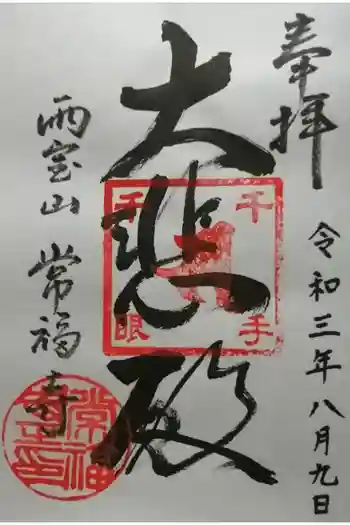 奉拝
令和三年八月九日
大悲殿
千手
千眼
雨宝山 常福寺
常福寺印